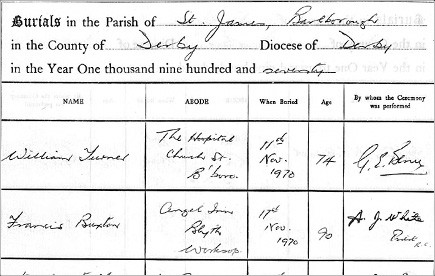 Burials in the Parish of St. James, Barlborough
in the County of Derby Diocese of Derby
in the Year One thousand nine hundred and seventy
NAME ABODE When Buried Age By whom the Ceremony was performed
William Turner The Hospital Church St. B'boro. 11th Nov. 1970 74
Francis Buxton Angel Inn Blyth Worksop 17th Nov. 1970 90 A. J. White